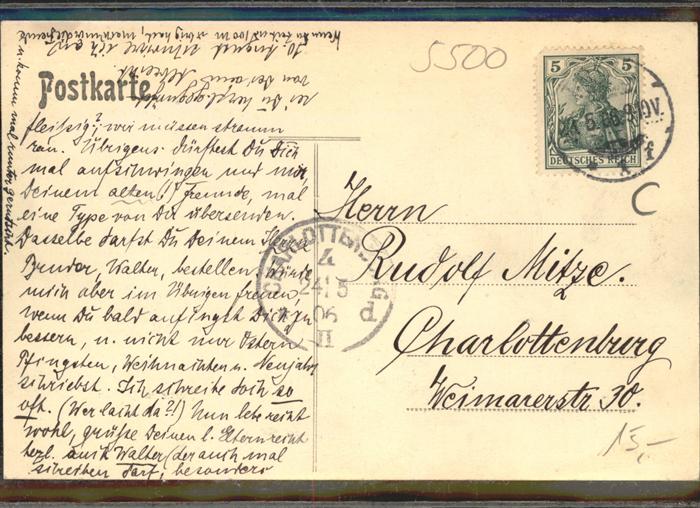 Postkarte
5500
5 5
DEUTSCHES REICH
CHARLOTTENBURG
4 d
24 5
06
II
C
fleißig? wir müssen stramm
ran. Übrigens dürftest Du Dich
mal aufschwingen und mir,
Deinem alten (!) Freunde, mal
eine Type von Dir übersenden.
Dasselbe darfst Du Deinem Herrn
Bruder, Walter, bestellen, würde
mich aber im Übrigen freuen
wenn Du bald anfingst Dich zu
bessern, u. nicht nur Ostern,
Pfingsten, Weihnachten u. Neujahr
schriebst. Ich schreibe doch so
oft. (Wer lacht da?!) Nun lebe recht
wohl, grüße Deinen l. Eltern recht
herzl. auch Walter (der auch mal
schreiben darf, besonders
u. komm mal runter gerutscht.
Herrn
Rudolf Mitze.
Charlottenburg
Weimarerstr 30.
15,-